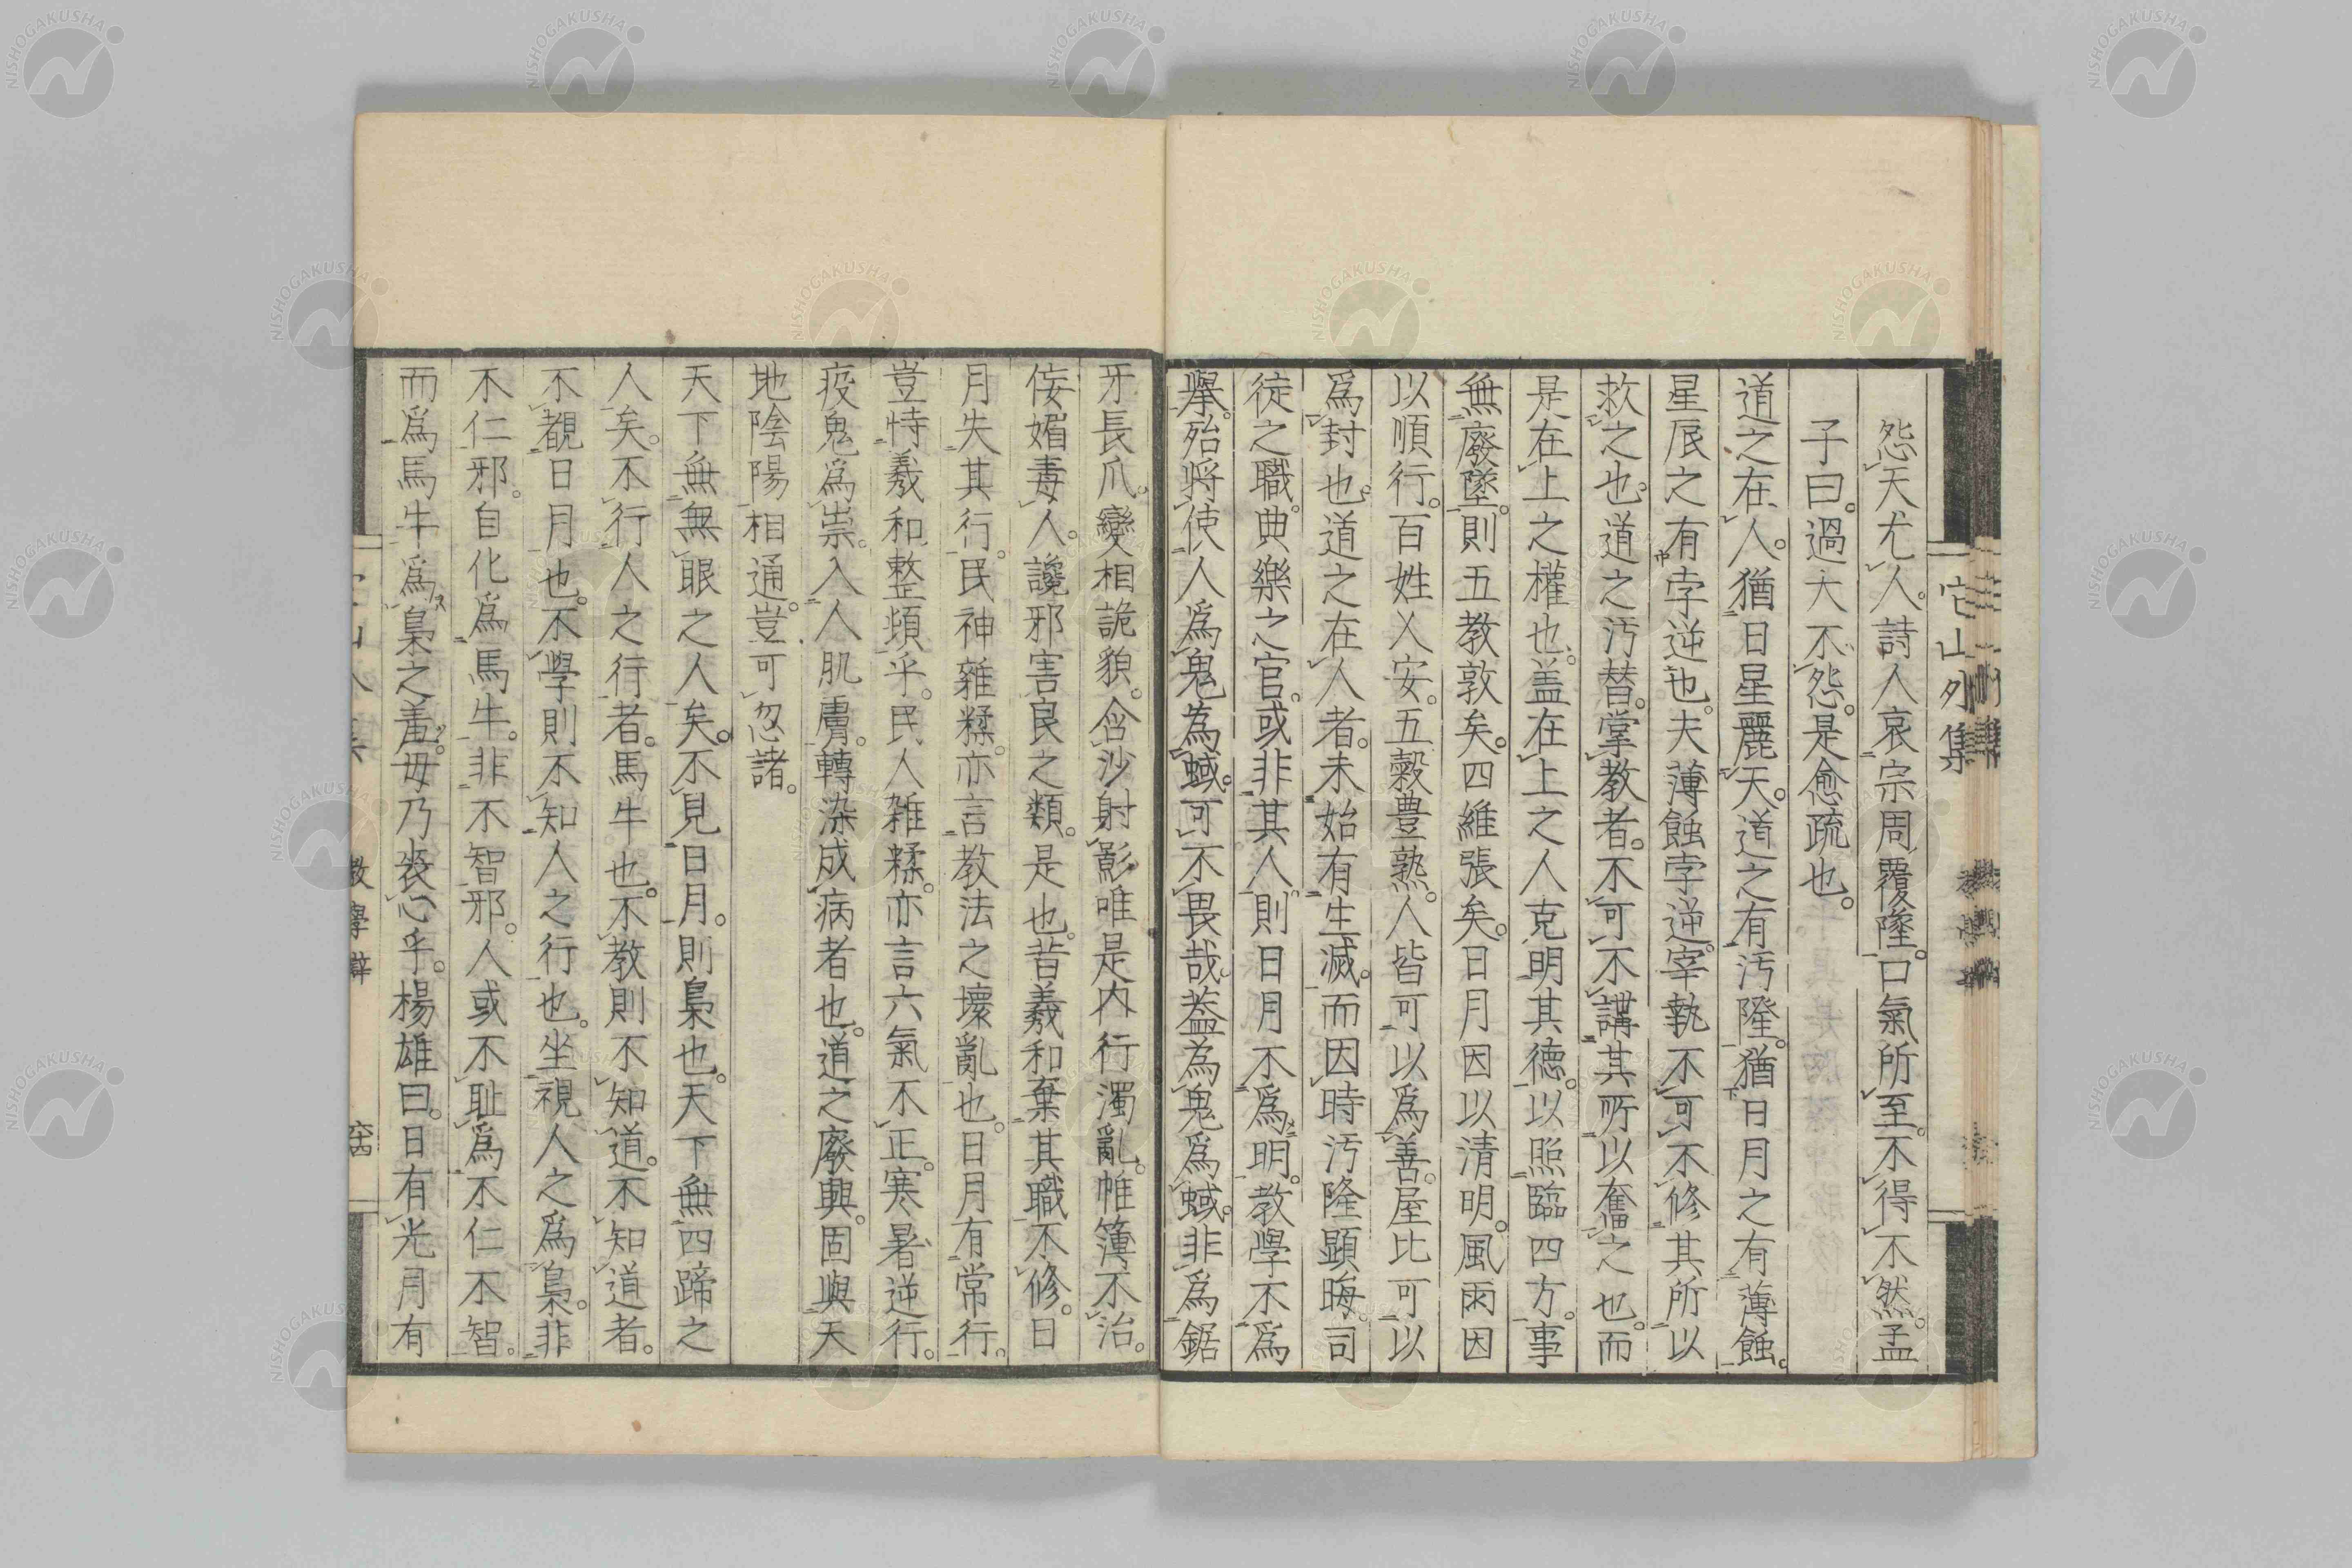 宅山外集
怨天尤人。詩人哀宗周覆墜。口氣所至。不得不然。孟
子曰。過大不怨。是愈疏也。
道之在人。猶日星麗天。道之有汚隆。猶日月之有薄蝕。
星辰之有孛逆也。夫薄蝕孛逆。宰執不可不修其所以
救之也。道之汚替。掌教者。不可不講其所以奮之也。而
是在上之權也。盖在上之人克明其德。以照臨四方。事
無廢墜。則五教敦矣。四維張矣。日月因以清明。風雨因
以順行。百姓乂安。五穀豊熟。人皆可以爲善。屋比可以
爲封也。道之在人者。未始有生滅。而因時汚隆顯晦。司
徒之職。典樂之官。或非其人。則日月不爲明。教學不爲
擧。殆將使人爲鬼為蜮。可不畏哉。蓋為鬼爲蜮。非爲鋸
牙長爪。變相詭貌。含沙射影。唯是内行濁亂。帷簿不治。
侫媚毒人。讒邪害良之類。是也。昔羲和棄其職不修。日
月失其行。民神雜糅。亦言教法之壞亂也。日月有常行。
豈恃羲和整頻乎。民人雑糅。亦言六氣不正。寒暑逆行。
疫鬼爲祟。入人肌膚。轉染成病者也。道之廢興。固與天
地陰陽相通。豈可忽諸。
天下無無眼之人矣。不見日月。則梟也。天下無四蹄之
人矣。不行人之行者。馬牛也。不教則不知道。不知道者。
不覩日月也。不學則不知人之行也。坐視人之爲梟。非
不仁邪。自化爲馬牛。非不智邪。人或不耻爲不仁不智。
而爲馬牛爲梟之羞。毋乃喪心乎。楊雄曰。日有光月有
教學辯
六十四